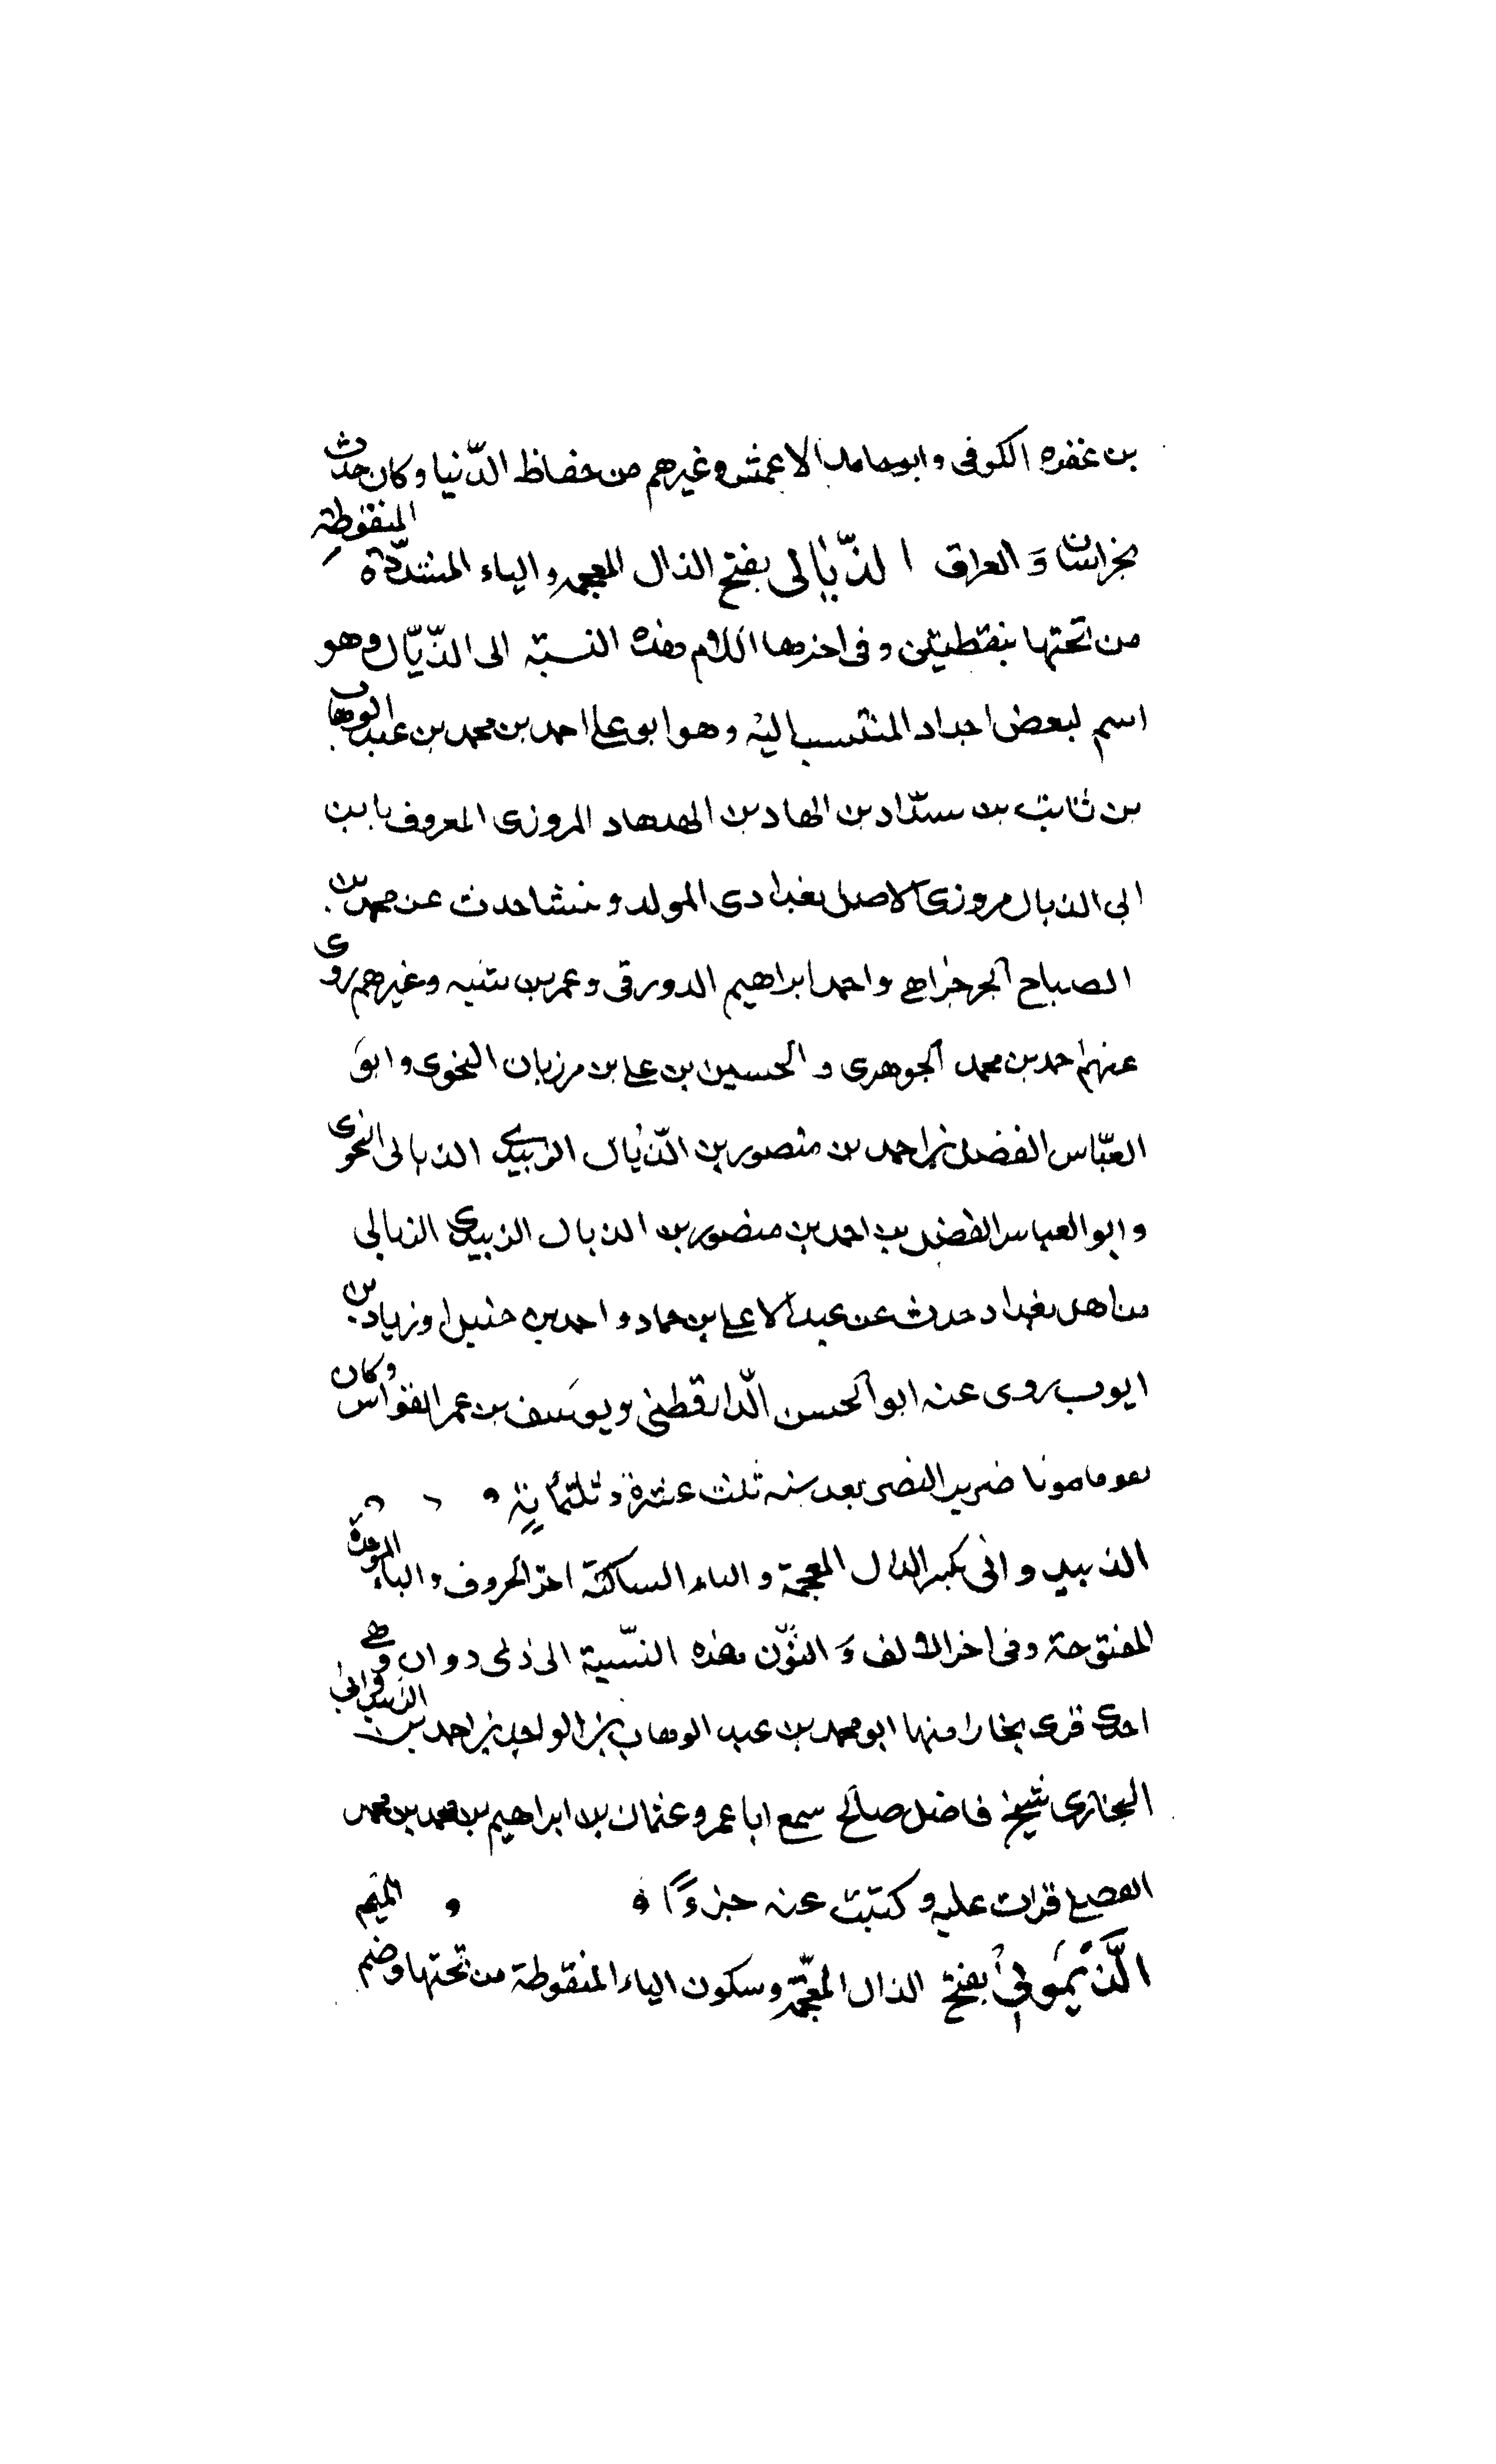 بن عقده الكوفى وابو حامد الاعمش وغيرهم من حفاظ الدّنيا وكان حدث
بخراسان وَ العراق الذّيّالى بفتح الذال المعجمه والياء المشدّدة المنقوطة
من تحتها بنقطتين وفى اخرها اللام هذه النسبة الى الذّيّال وهو
اسم لبعض اجداد المنتسب اليه وهو ابو على احمد بن محمد بن عبد الوهاب
بن ثابت بن شدّاد بن الهاد بن الهدهاد المروزى المعروف بابن
ابى الذيال مروزى الاصل بغدادى المولد ومنشا حدث عن محمد بن
الصباح الجرجراى واحمد ابراهيم الدورقى وعمر بن شبيه وغيرهم روى
عنهم احمد بن محمد الجوهرى و الحسين بن على بن مرزبان النحوى وابوَ
العبّاس الفضل بن احمد بن منصور بن الذّيال الزبيدى الذيالى النحوى
وابو العباس الفضل بن احمد بن منصور بن الذيال الزبيدى الذيالى
من اهل بغداد حدث عن عبد الاعلى بن حماد واحمد بن حنبل وزياد بن
ايوب روى عنه ابو الحسن الدّارقطنى ويوسف بن عمر القواس وكان
مامونا ضرير البصر بعد سنه ثلث عشرة وثلثمائة
الذيبدوانى بكسر الذال المعجمة والياء الساكنة اخر الحروف والباء الموحدة
المفتوحة وفى اخر الالف وَ النوّن هذه النّسبة الى ذى دوان وهى
احدى قرى بخارا منها ابو محمد بن عبد الوهاب بن الواحد بن احمد بن الذيبدوانى
البخارى شيخ فاضل صالح سمع ابا عمرو عثمان بن ابراهيم بن محمد بن محمد
الفضلى قرات عليه وكتبت عنه جزءًا
الَّذيمُونى بفتح الذال المعجّمة وسكون الياء المنقوطة من تحتها وضم الميم